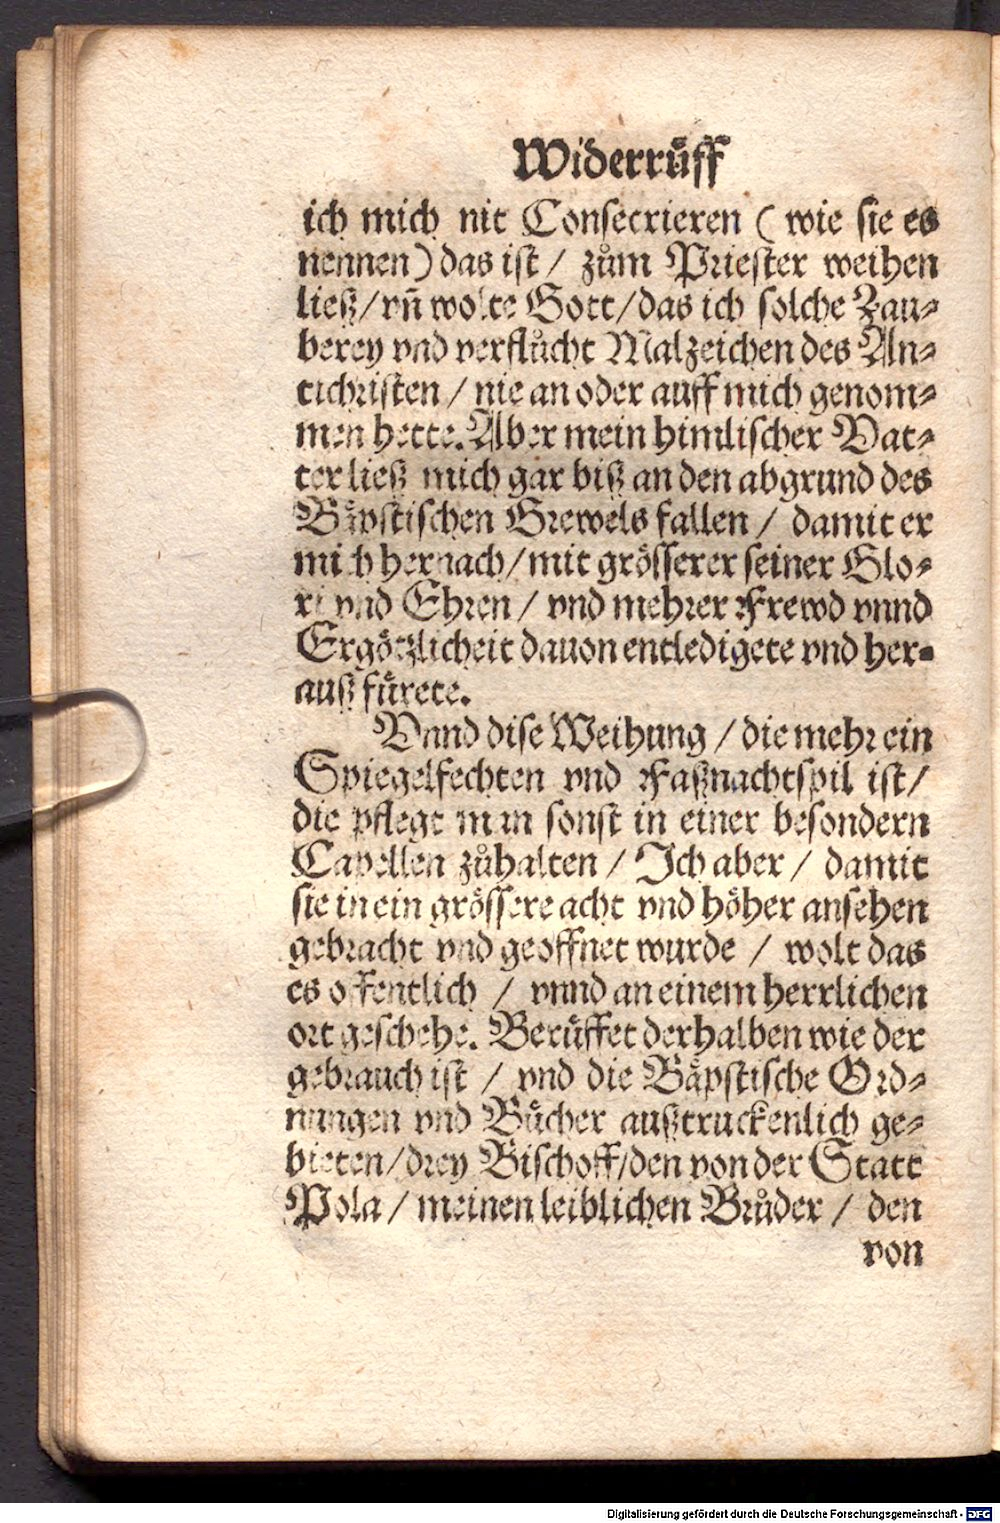 Widerrůff
ich mich nit Consecrieren ( wie sie es
nennen) das ist / zům Priester weihen
ließ / vñ wolte Gott / das ich solche Zau⸗
berey vnd verflůcht Malzeichen des An⸗
tichristen / nie an oder auff mich genom⸗
men hette. Aber mein himlischer Vat⸗
ter ließ mich gar biß an den abgrund des
Bäpstischen Grewels fallen / damit er
mich hernach / mit grösserer seiner Glo⸗
ri vnd Ehren / vnd mehrer Frewd vnnd
Ergötzlicheit dauon entledigete vnd her⸗
auß fürete.
Vnnd dise Weihung / die mehr ein
Spiegelfechten vnd Faßnachtspil ist /
die pflegt man sonst in einer besondern
Capellen zůhalten / Ich aber / damit
sie in ein grössere acht vnd höher ansehen
gebracht vnd geoffnet wurde / wolt das
es offentlich / vnnd an einem herrlichen
ort geschehe. Berůffet derhalben wie der
gebrauch ist / vnd die Bäpstische Ord⸗
nungen vnd Bücher außtruckenlich ge⸗
bieten / drey Bischoff / den von der Statt
Pola / meinen leiblichen Brůder / den
von
Digitalisierung gefördert durch die Deutsche Forschungsgemeinschaft - DFG